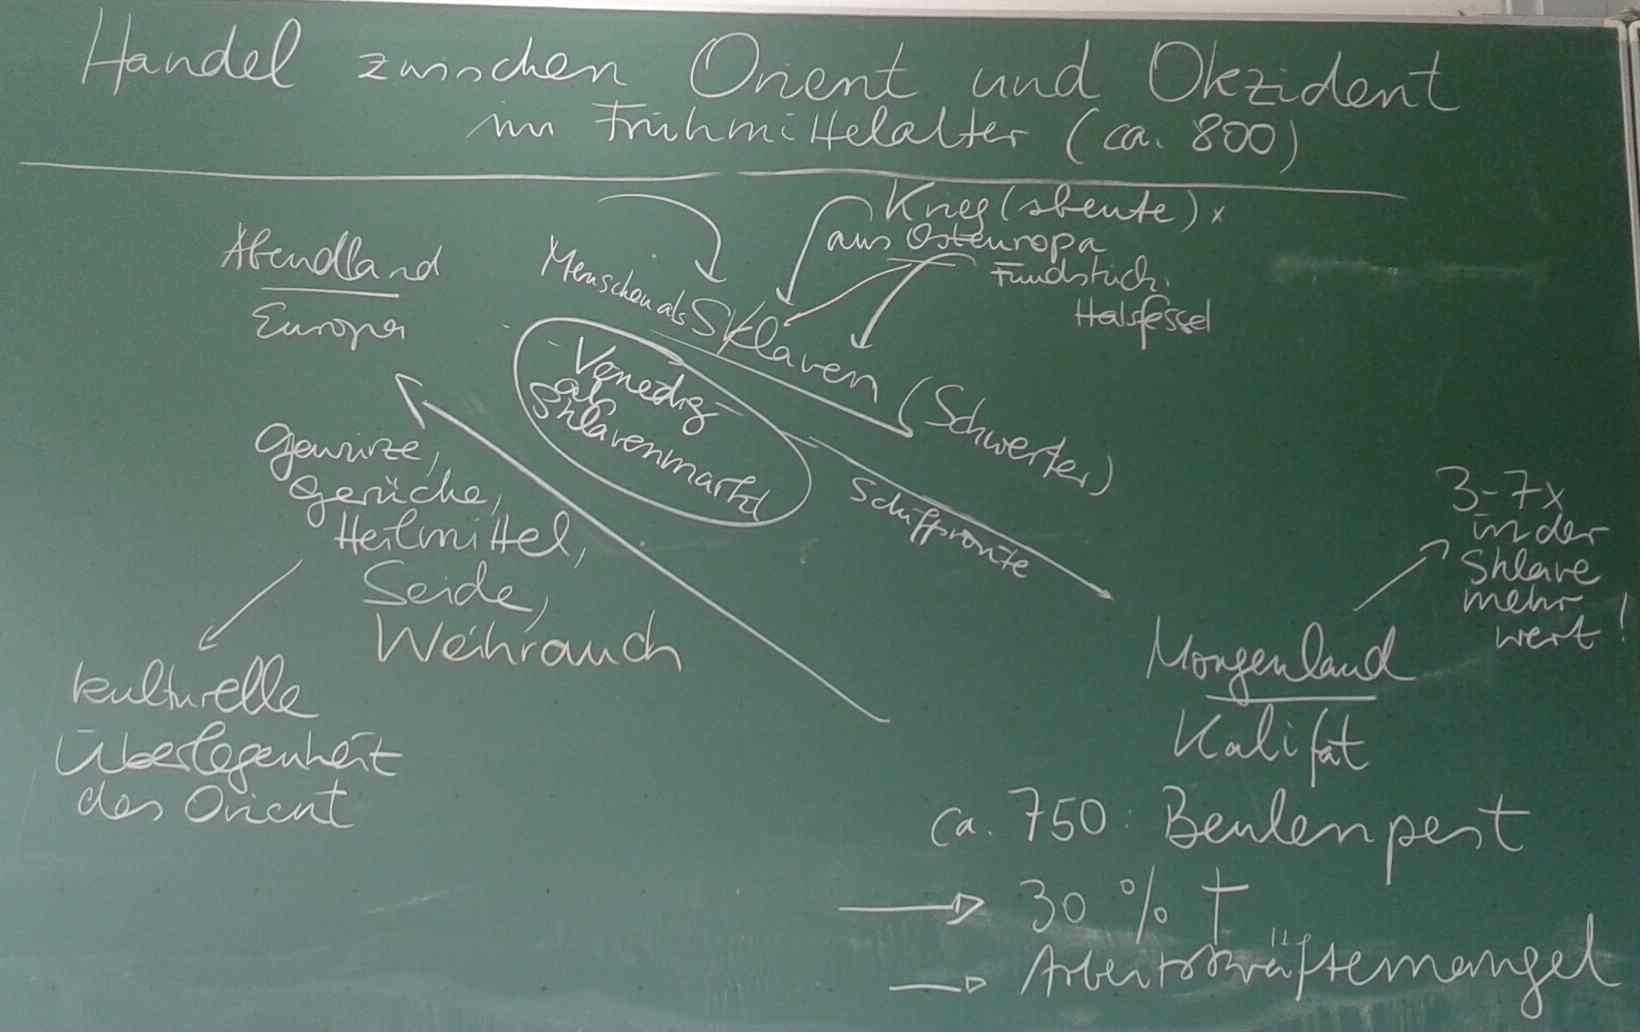 Handel zwischen Orient und Okzident
im Frühmittelalter (ca. 800)
Krieg(sbeute) x
aus Osteuropa
Fundstück.
Halsfessel
Abendland
Europa
Menschen als Sklaven (Schwerter)
Venedig
als
Sklavenmarkt
Schiffsroute
Gewürze,
Gerüche,
Heilmittel,
Seide,
Weihrauch
kulturelle
Überlegenheit
des Orient
3-7x
in der
Sklave
mehr
wert!
Morgenland
Kalifat
ca. 750: Beulenpest
30 % †
Arbeitskräftemangel